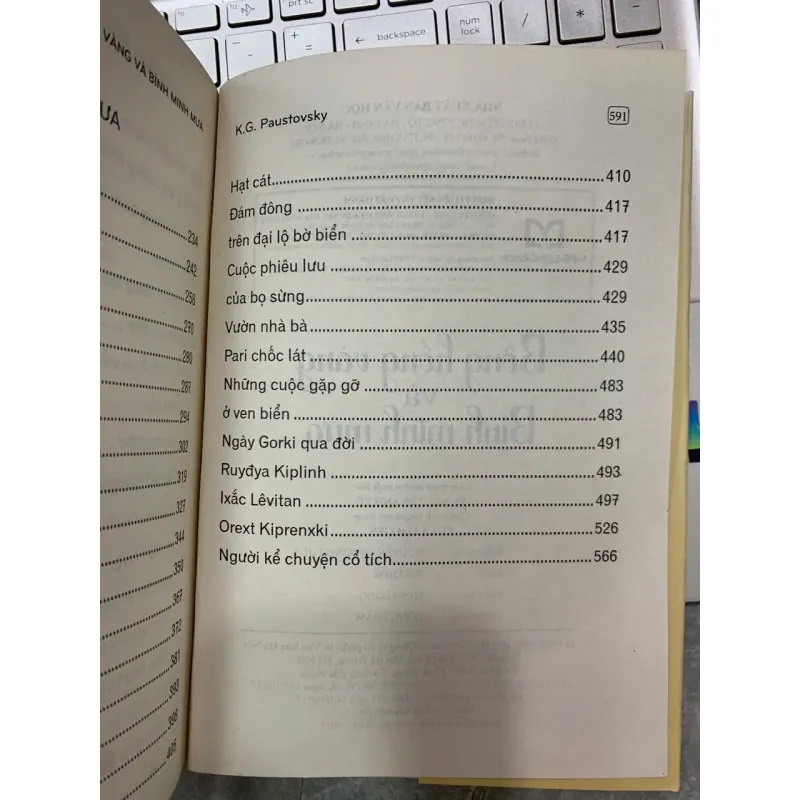 prt sc
backspace
num
lock
VÀNG VÀ BÌNH MINH MƯA
ƯA
234
242
258
270
280
287
294
302
319
327
344
350
367
372
381
393
398
405
K.G. Paustovsky 591
Hạt cát 410
Đám đông 417
trên đại lộ bờ biển 417
Cuộc phiêu lưu 429
của bọ sừng 429
Vườn nhà bà 435
Pari chốc lát 440
Những cuộc gặp gỡ 483
ở ven biển 483
Ngày Gorki qua đời 491
Ruyđya Kiplinh 493
Ixắc Lêvitan 497
Orext Kiprenxki 526
Người kể chuyện cổ tích 566
NHÀ XUẤT BẢN VĂN HỌC
Bông hồng vàng
và
Bình minh mưa